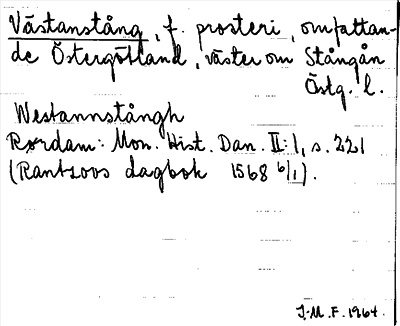 Västanstång, f. prosteri, omfattan-
de Östergötland, väster om Stångån
Östg. l.
Westannstångh
Rørdam: Mon. Hist. Dan. II:1, s. 221
(Rantzovs dagbok 1568 6/1).
J.M.F. 1964.